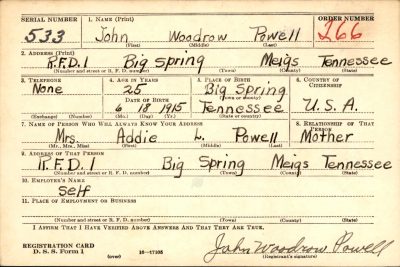 SERIAL NUMBER 1. NAME (Print) ORDER NUMBER
533 John Woodrow Powell 266
(First) (Middle) (Last)
2. ADDRESS (Print)
R.F.D.1 Big Spring Meigs Tennessee
(Number and street or R. F. D. number) (Town) (County) (State)
3. TELEPHONE 4. AGE IN YEARS 5. PLACE OF BIRTH 6. COUNTRY OF CITIZENSHIP
None 25 Big Spring
DATE OF BIRTH (Town or county)
6 18 1915 Tennessee U.S.A.
(Exchange) (Number) (Mo.) (Day) (Yr.) (State or country)
7. NAME OF PERSON WHO WILL ALWAYS KNOW YOUR ADDRESS 8. RELATIONSHIP OF THAT PERSON
Mrs. Addie L. Powell Mother
(Mr., Mrs., Miss) (First) (Middle) (Last)
9. ADDRESS OF THAT PERSON
R.F.D.1 Big Spring Meigs Tennessee
(Number and street or R. F. D. number) (Town) (County) (State)
10. EMPLOYER'S NAME
Self
11. PLACE OF EMPLOYMENT OR BUSINESS
(Number and street or R. F. D. number) (Town) (County) (State)
I AFFIRM THAT I HAVE VERIFIED ABOVE ANSWERS AND THAT THEY ARE TRUE.
REGISTRATION CARD
D. S. S. Form 1 (over) 16—17105 John Woodrow Powell
(Registrant's signature)